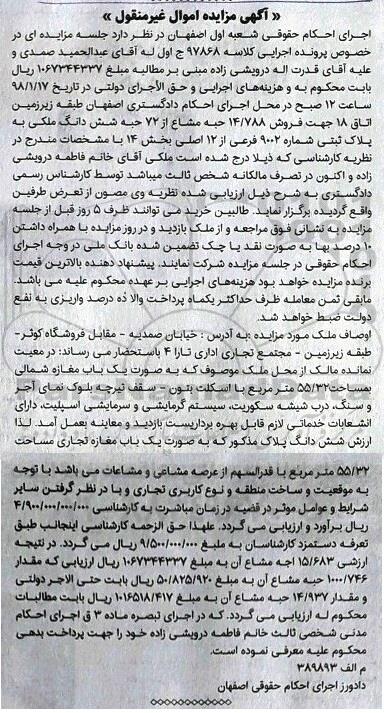 « آگهی مزایده اموال غیرمنقول »
اجرای احکام حقوقی شعبه اول اصفهان در نظر دارد جلسه مزایده ای در
خصوص پرونده اجرایی کلاسه ۹۷۸۶۸ ج اول له آقای عبدالحمید صمدی و
علیه آقای قدرت اله درویشی زاده مبنی بر مطالبه مبلغ ۱۰۶۷۳۴۴۳۳۷ ریال
بابت محکوم به و هزینه‌های اجرایی و حق الاجرای دولتی در تاریخ ۹۸/۱/۱۷
ساعت ۱۲ صبح در محل اجرای احکام دادگستری اصفهان طبقه زیرزمین
اتاق ۱۸ جهت فروش ۱۴/۷۸۸ حبه مشاع از ۷۲ حبه شش دانگ ملکی به
پلاک ثبتی شماره ۹۰۰۲ فرعی از ۱۲ اصلی بخش ۱۴ با مشخصات مندرج در
نظریه کارشناسی که ذیلا درج شده است ملکی آقای خانم فاطمه درویشی
زاده و اکنون در تصرف مالکانه شخص ثالث میباشد توسط کارشناس رسمی
دادگستری به شرح ذیل ارزیابی شده نظریه وی مصون از تعرض طرفین
واقع گردیده برگزار نماید. طالبین خرید می توانند ظرف ۵ روز قبل از جلسه
مزایده به نشانی فوق مراجعه و از ملک بازدید و در روز مزایده با همراه داشتن
۱۰ درصد بها به صورت نقد یا چک تضمین شده بانک ملی در وجه اجرای
احکام حقوقی در جلسه مزایده شرکت نمایند. پیشنهاد دهنده بالاترین قیمت
برنده مزایده خواهد بود هزینه‌های اجرایی بر عهده محکوم علیه می باشد.
مابقی ثمن معامله ظرف حداکثر یکماه پرداخت والا ده درصد واریزی به نفع
دولت ضبط خواهد شد.
اوصاف ملک مورد مزایده :به آدرس : خیابان صمدیه - مقابل فروشگاه کوثر-
طبقه زیرزمین - مجتمع تجاری اداری تارا ۴ باستحضار می رساند: در معیت
نماینده مالک از محل ملک موصوف که به صورت یک باب مغازه شمالی
بمساحت۵۵/۳۲ متر مربع با اسکلت بتون - سقف تیرچه بلوک نمای آجر
و سنگ، درب شیشه سکوریت، سیستم گرمایشی و سرمایشی اسپلیت، دارای
انشعابات خدماتی لازم قابل بهره برداریست بازدید و معاینه بعمل آمد. لذا
ارزش شش دانگ پلاک مذکور که به صورت یک باب مغازه تجاری مساحت
۵۵/۳۲ متر مربع با قدرالسهم از عرصه مشاعی و مشاعات می باشد با توجه
به موقعیت و ساخت منطقه و نوع کاربری تجاری و با در نظر گرفتن سایر
شرایط و عوامل موثر در قضیه در زمان مباشرت به کارشناسی ۴/۹۰۰/۰۰۰/۰۰۰
ریال برآورد و ارزیابی می گردد. علهذا حق الزحمه کارشناسی اینجانب طبق
تعرفه دستمزد کارشناسان به مبلیغ ۹/۵۰۰/۰۰۰ ریال می گردد. در نتیجه
ارزشی ۱۵/۶۸۳ اجه مشاع آن به مبلغ ۱۰۶۷۳۴۴۳۳۷ ریال ارزیابی که مقدار
۱۰۰۰/۷۴۶ حبه مشاع آن به مبلغ ۵۰/۸۲۵/۹۲۰ ریال بابت حتی الاجر دولتی
و مقدار ۱۴/۹۳۷ حبه مشاع آن به مبلغ ۱۰۱۶۵۱۸/۴۱۷ ریال بابت مطالبات
محکوم له ارزیابی می گردد. که در اجرای تبصره ماده ۳ ق اجرای احکام
مدنی شخصی ثالث خانم فاطمه درویشی زاده خود را جهت پرداخت بدهی
محکوم علیه معرفی نموده است.
م الف ۳۸۹۸۹۳
دادورز اجرای احکام حقوقی اصفهان